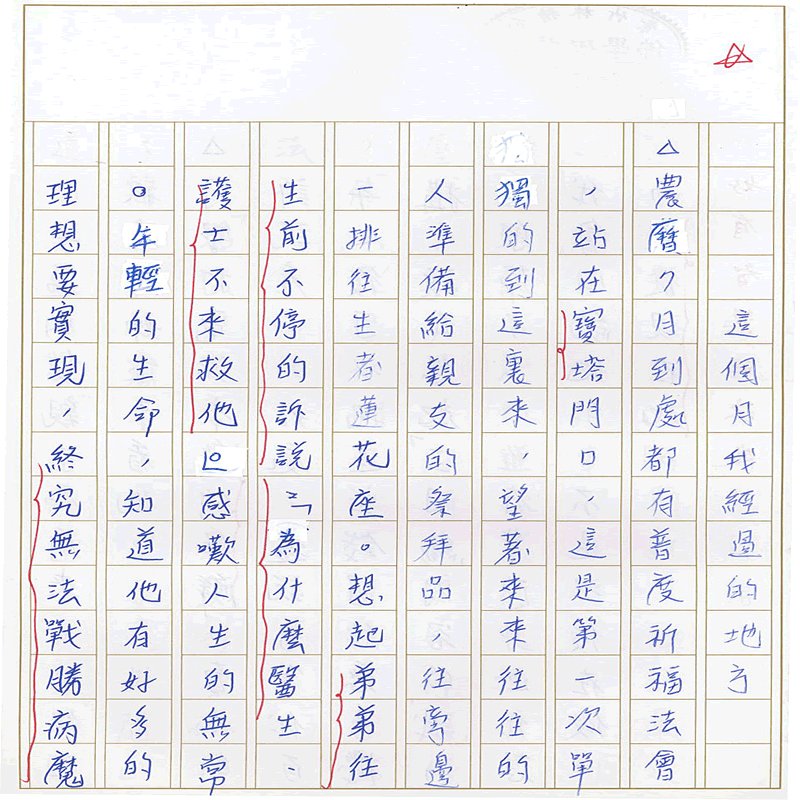 這個月我經過的地方
△農曆7月到處都有普度祈福法會
，站在寶塔門口，這是第一次單
獨的到這裏來，望著來來往往的
人準備給親友的祭拜品，往旁邊
一排往生者蓮花座。想起弟弟往
生前不停的訴說：「為什麼醫生、
護士不來救他」感嘆人生的無常
。年輕的生命，知道他有好多的
理想要實現，終究無法戰勝病魔